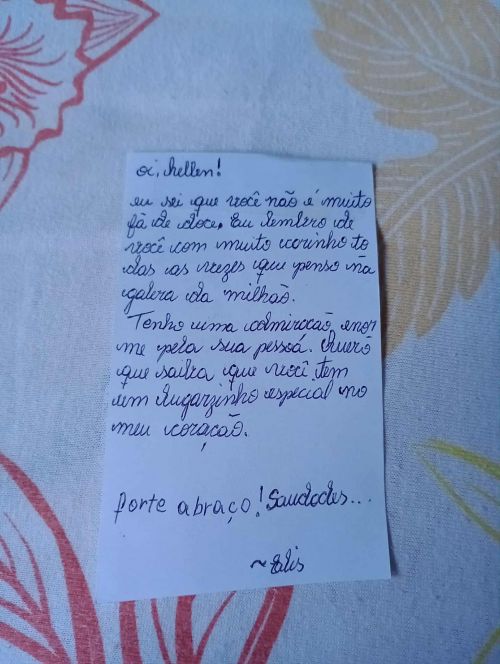 oi, hellen!
eu sei que você não é muito
fã de doce. Eu lembro de
você com muito carinho to
das as vezes que penso na
galera da milhão.
Tenho uma admiração enor
me pela sua pessoá. Quero
que saiba que você tem
um lugarzinho especial no
meu coração.
Forte abraço! Saudades...
~Elis